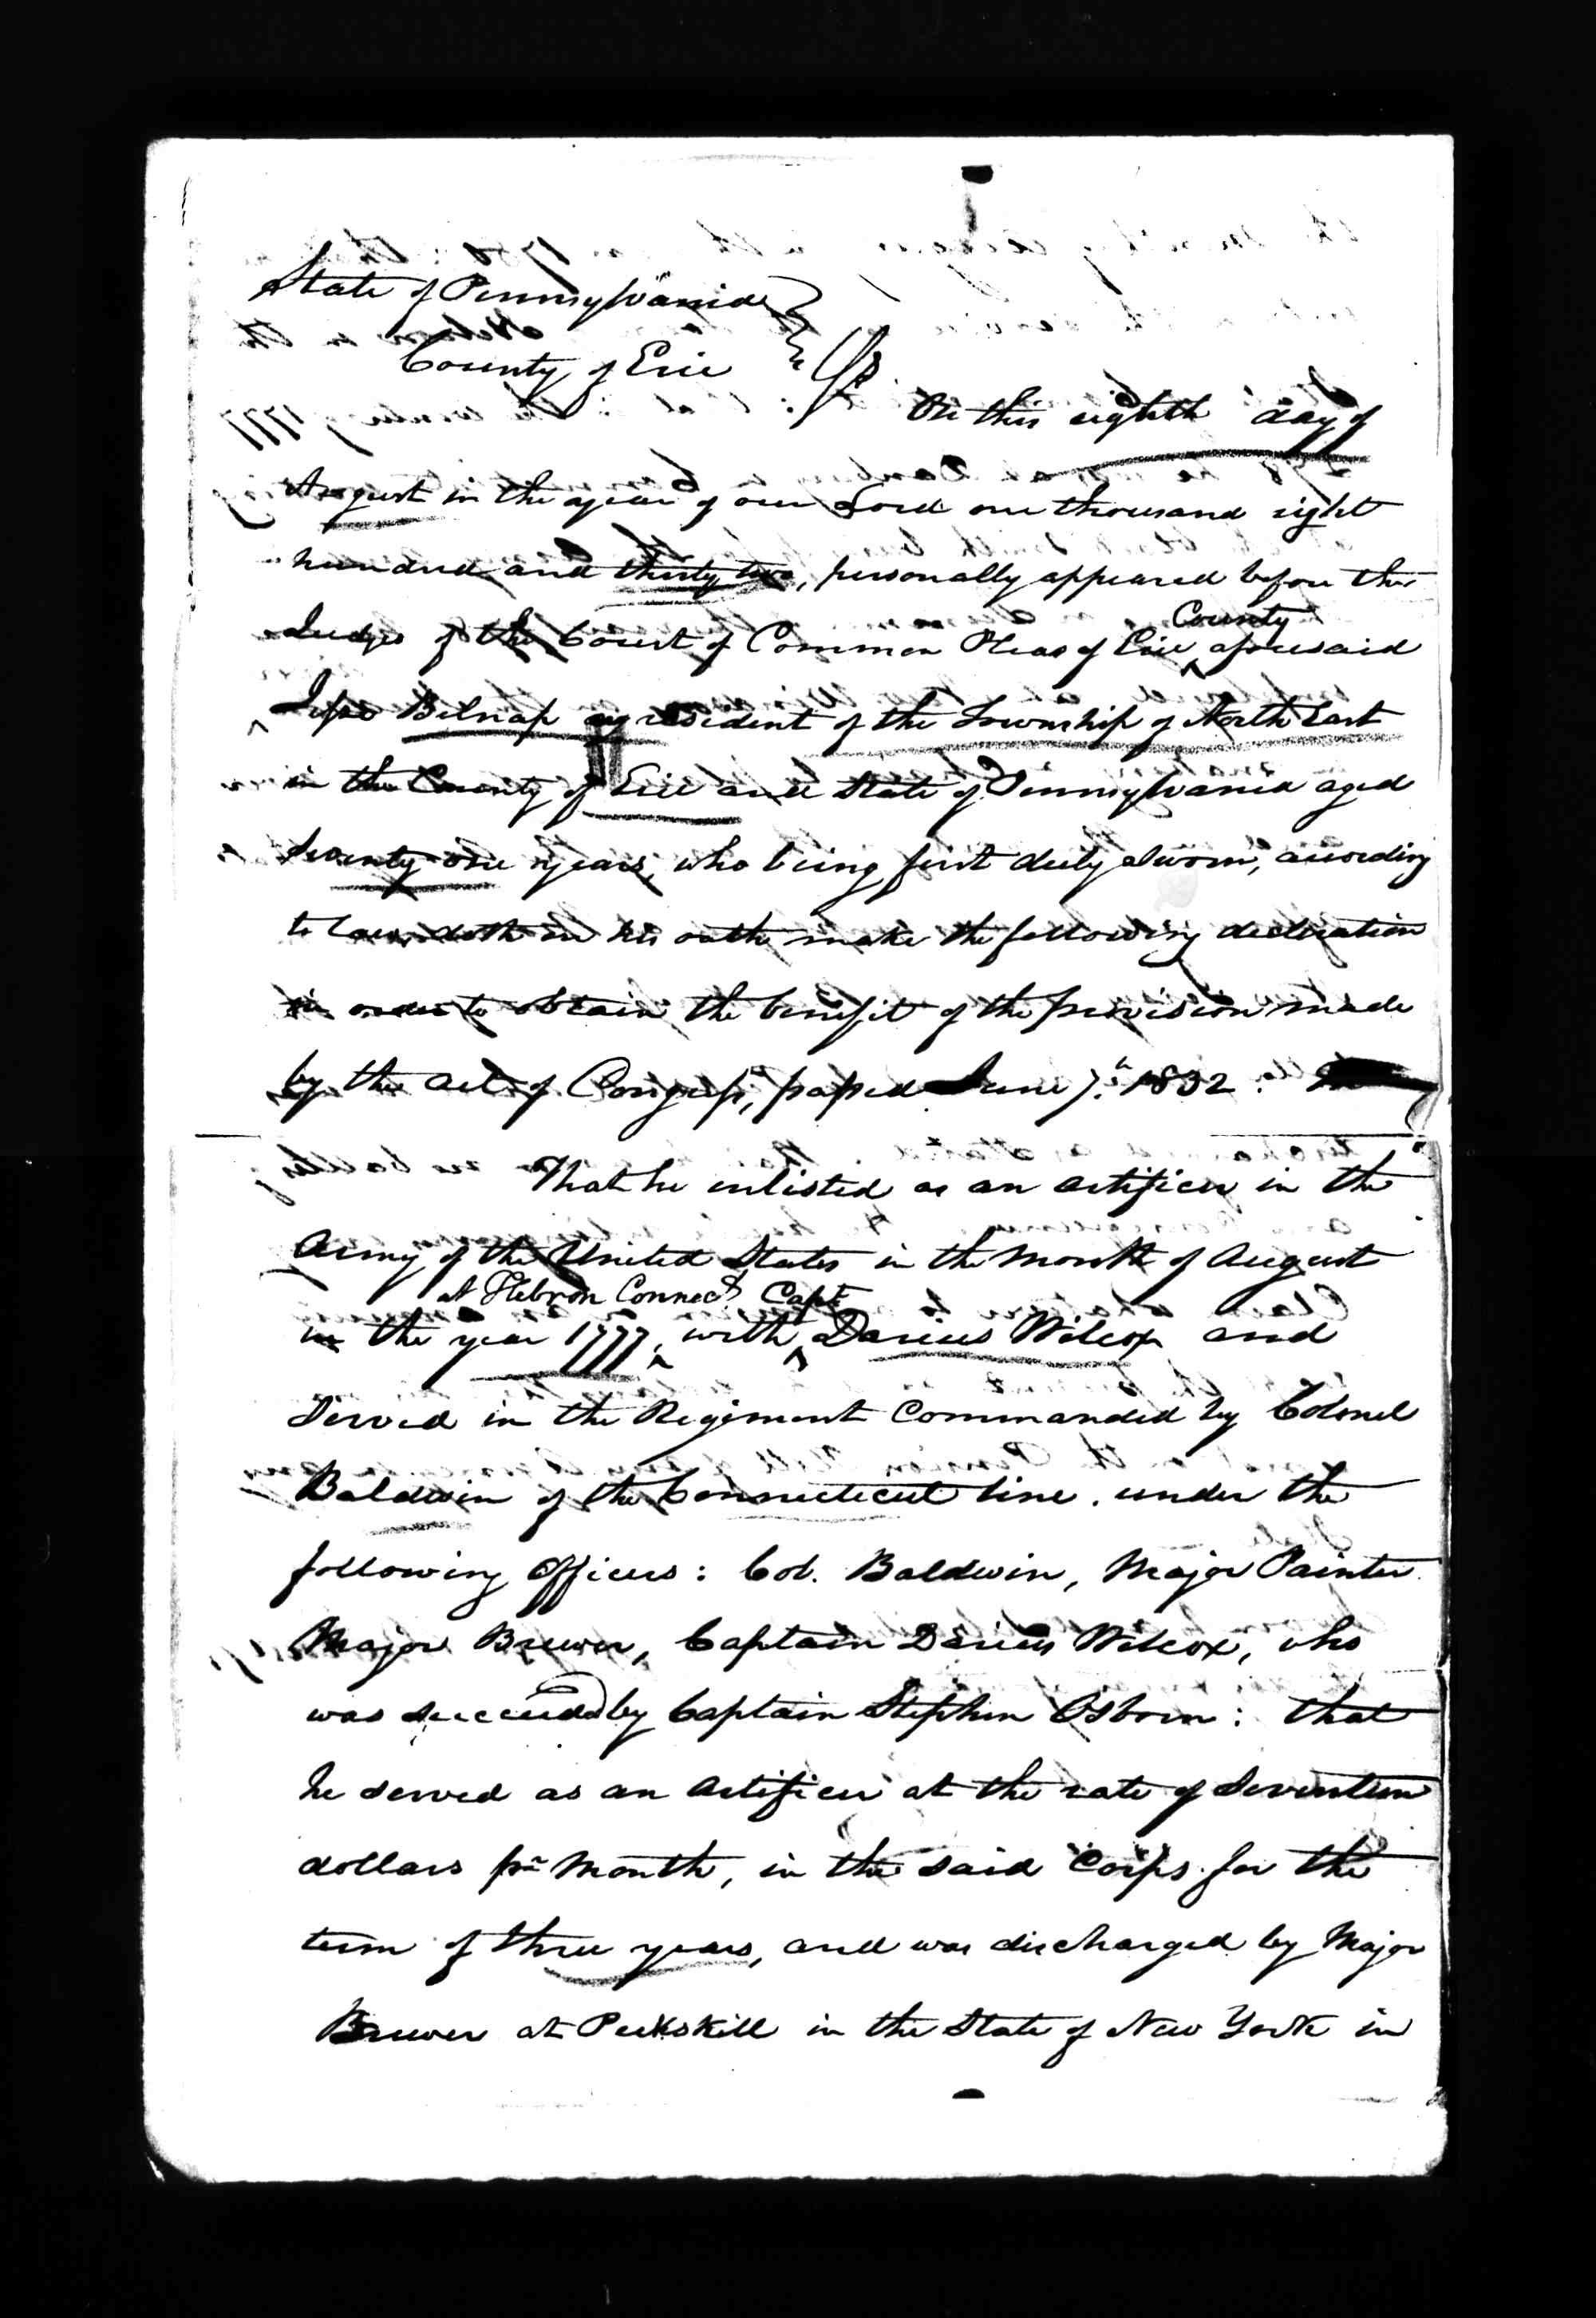 State of Pennsylvania
County of Erie } SS
On this eighth day of
August in the year of our Lord one thousand eight
hundred and thirty two, personally appeared before the
Judges of the Court of Common Pleas of Erie County aforesaid
Belnap a resident of the Township of North East
in the County of Erie and State of Pennsylvania aged
Seventy one years, who being first duly sworn, according
to law doth on his oath make the following declaration
in order to obtain the benefit of the provision made
by the act of Congress, passed June 7th 1832.
That he enlisted as an artificer in the
Army of the United States in the Month of August
at Hebron Connect Capt
in the year 1777, with Darius Wilcox and
Served in the Regiment Commanded by Colonel
Baldwin of the Connecticut line. under the
following Officers: Col. Baldwin, Major Painter
Major Brewer, Captain Darius Wilcox, who
was succeeded by Captain Stephen Osborn: that
he served as an artificer at the rate of Seventeen
dollars pr Month, in the said Corps for the
term of three years, and was discharged by Major
Brewer at Peekskill in the State of New York in